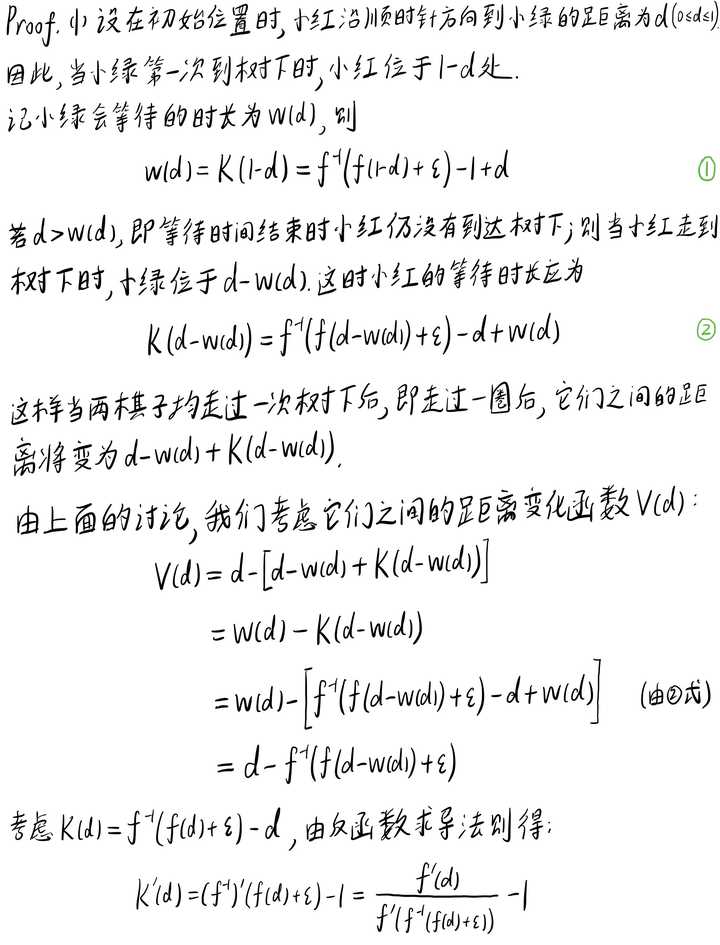 Proof. (1) 设在初始位置时,小红沿顺时针方向到小绿的距离为d(0≤d≤1).
因此,当小绿第一次到树下时,小红位于1-d处.
记小绿会等待的时长为w(d),则
w(d)=K(1-d)=f⁻¹(f(1-d)+ε)-1+d ①
若d>w(d),即等待时间结束时小红仍没有到达树下;则当小红走到
树下时,小绿位于d-w(d).这时小红的等待时长应为
K(d-w(d))=f⁻¹(f(d-w(d))+ε)-d+w(d) ②
这样当两棋子均走过一次树下后,即走过一圈后,它们之间的距
离将变为d-w(d)+K(d-w(d)).
由上面的讨论,我们考虑它们之间的距离变化函数V(d):
V(d)=d-[d-w(d)+K(d-w(d))]
=w(d)-K(d-w(d))
=w(d)-[f⁻¹(f(d-w(d))+ε)-d+w(d)] (由②式)
=d-f⁻¹(f(d-w(d))+ε)
考虑K(d)=f⁻¹(f(d)+ε)-d,由反函数求导法则得:
K'(d)=(f⁻¹)'(f(d)+ε)-1=f'(d)/f'(f⁻¹(f(d)+ε))-1